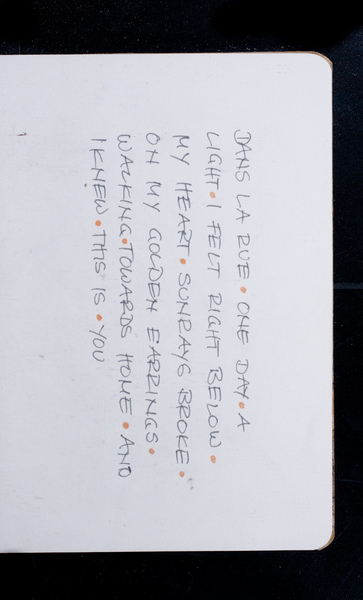 DANS LA RUE • ONE DAY • A
LIGHT • I FELT RIGHT BELOW •
MY HEART • SUNRAYS BROKE •
ON MY GOLDEN EARRINGS •
WALKING • TOWARDS HOME • AND
I KNEW • THIS IS • YOU